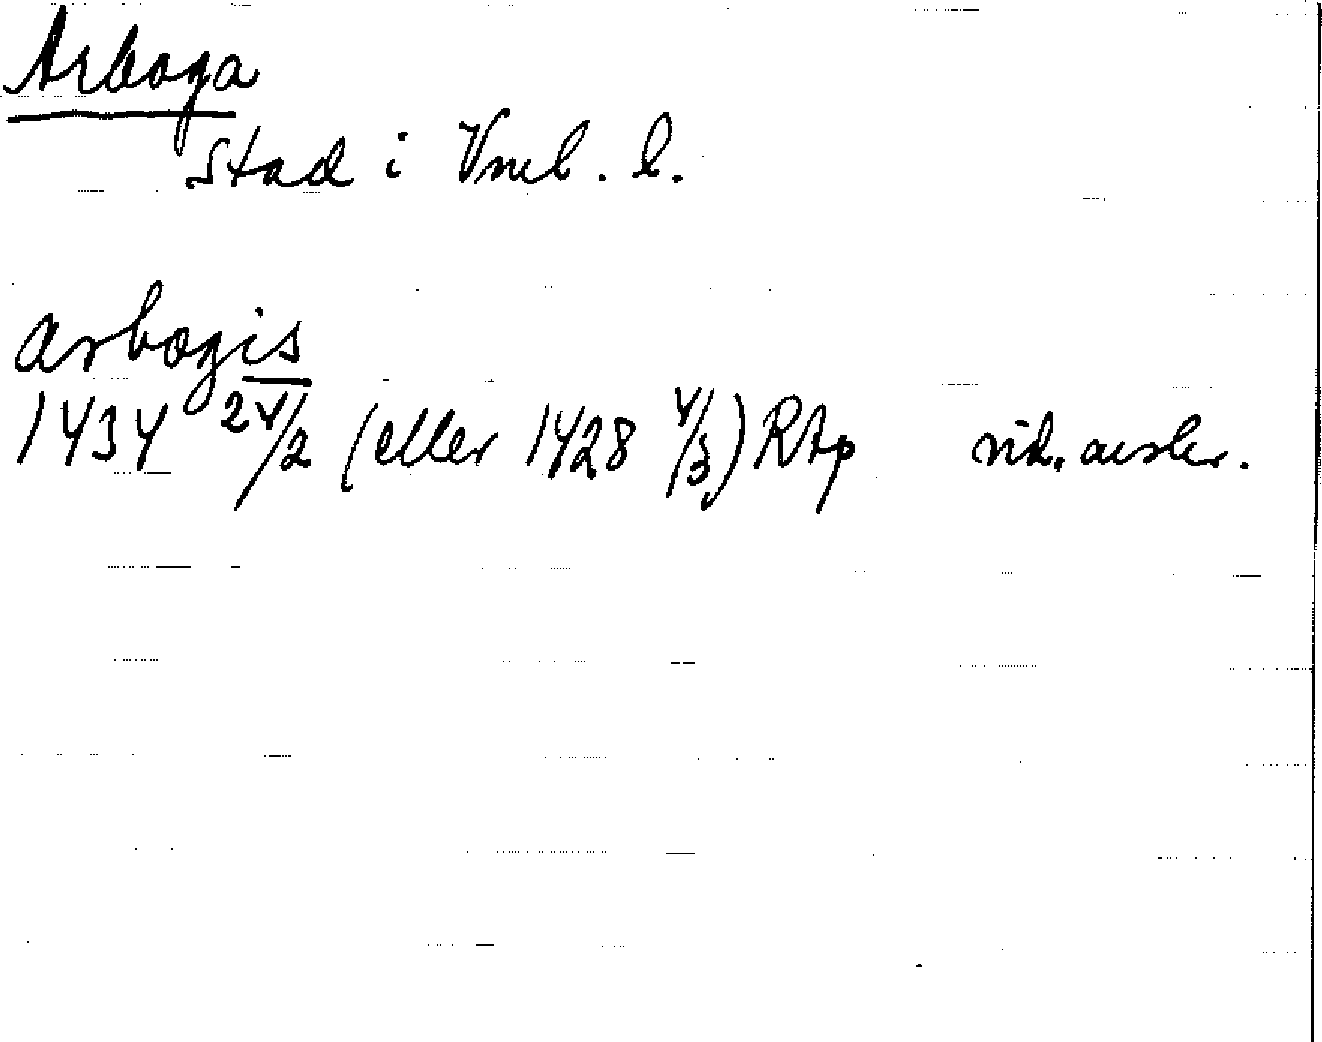 Arboga
Stad i Vml. l.
arbogis
1434 24/2 (eller 1428 4/3) RAp vid. avskr.